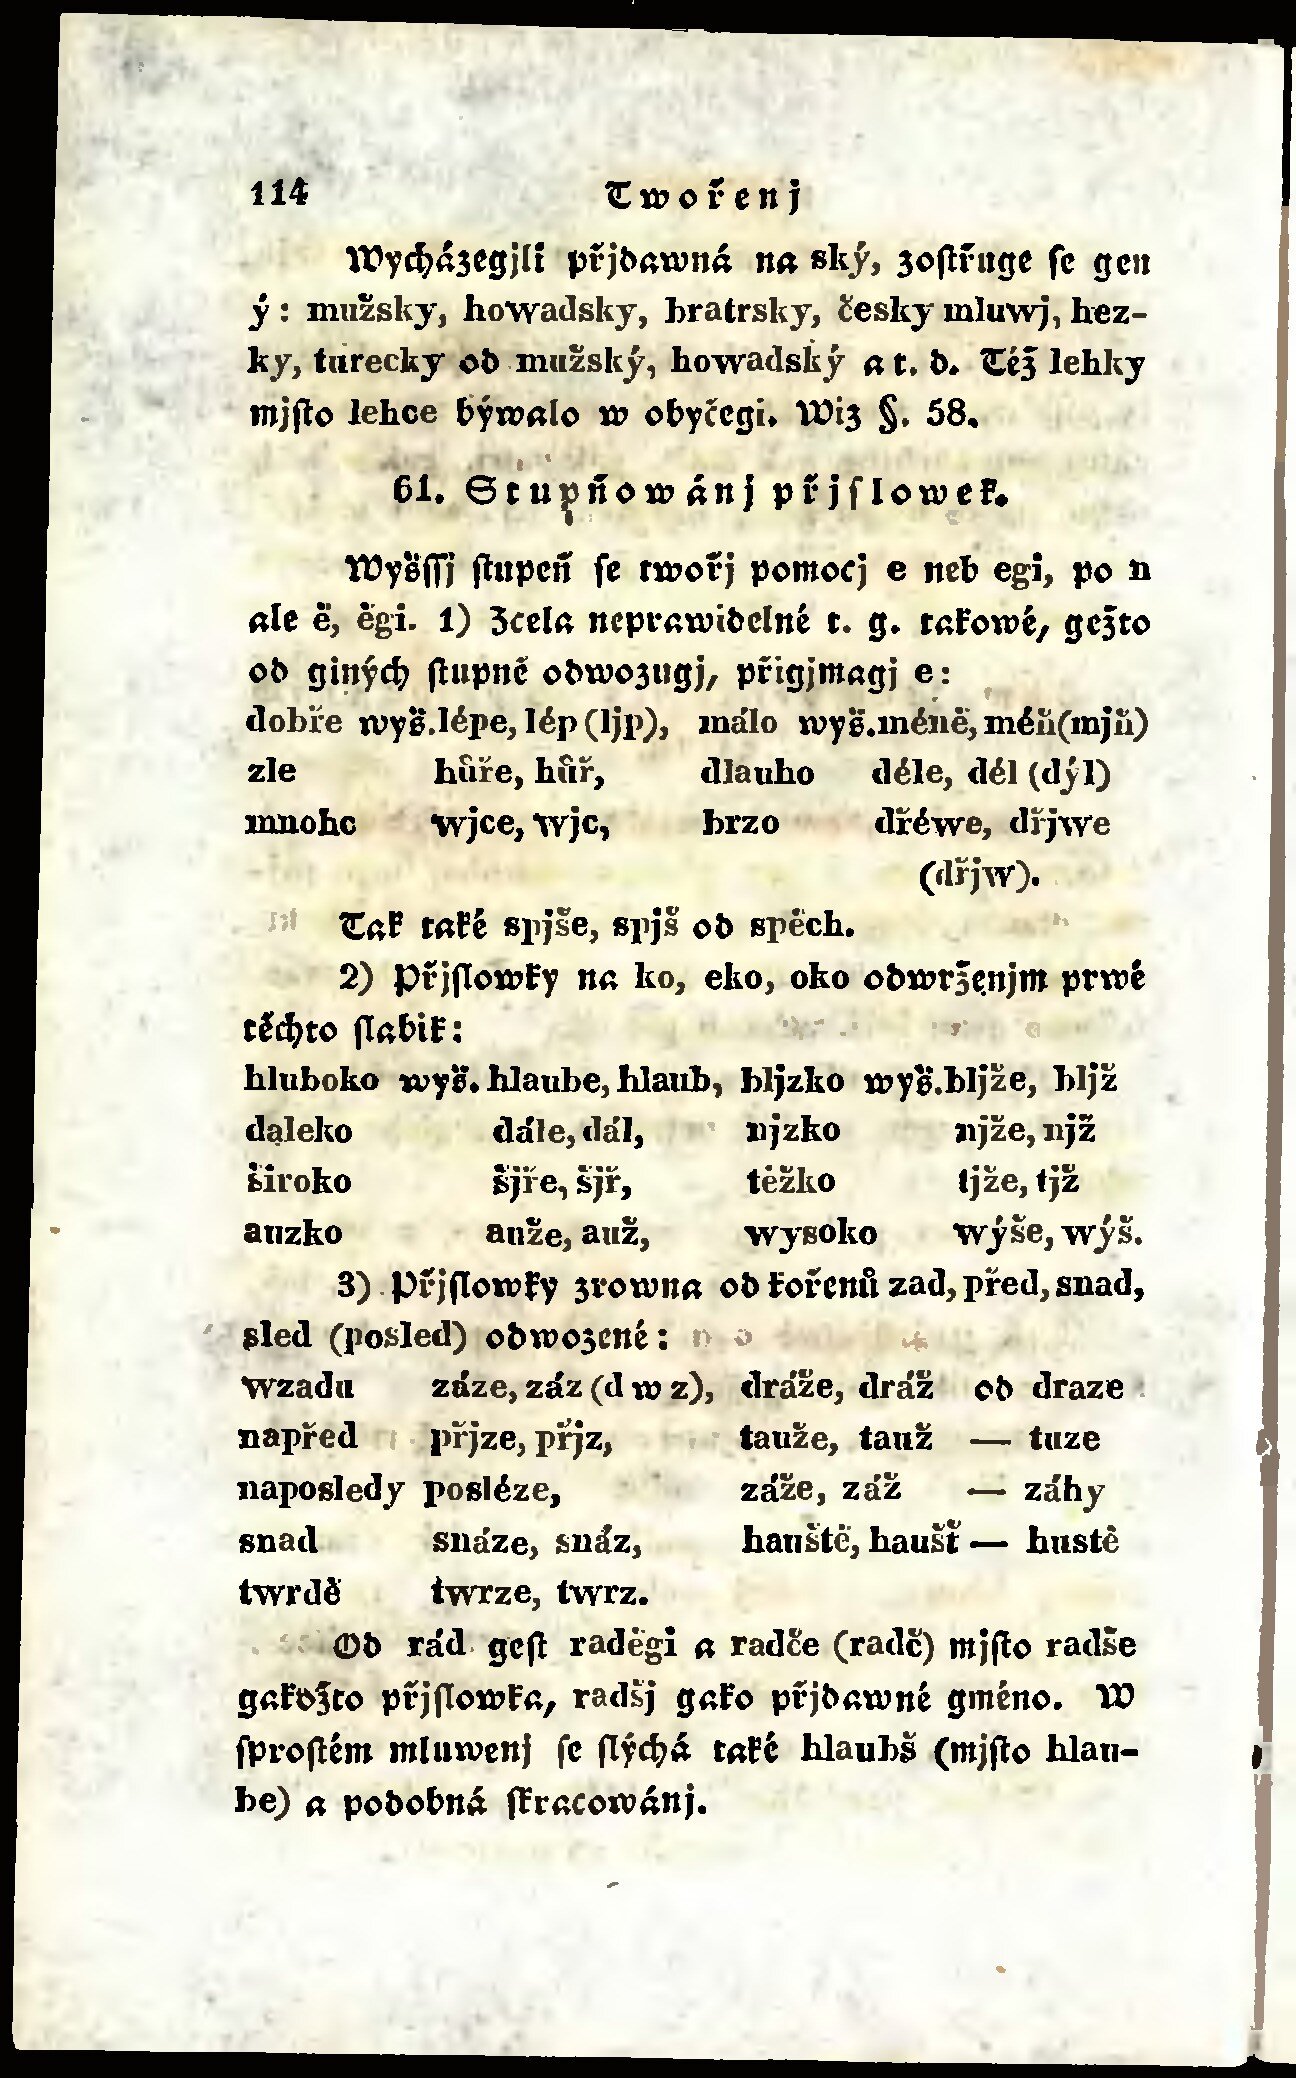 114 Twořenj
Wycházegjli přjdawná na ský, zostřuge se gen
ý: mužsky, howadsky, bratrsky, česky mluwj, hez-
ky, turecky od mužský, howadský a t. d. Též lehky
mjsto lehce býwalo w obyčegi. Wiz §. 58.
61. Stupňowánj přjslowek.
Wyšssj stupeň se twořj pomocj e neb egi, po n
ale ě, ěgi. 1) Zcela neprawidelné t. g. takowé, gežto
od giných stupně odwozugj, přigjmagj e:
dobře wyš. lépe, lép (ljp), málo wyš. méně, méň (mjň)
zle hůře, hůř, dlauho déle, dél (dýl)
mnoho wjce, wjc, brzo dřéwe, dřjwe
(dřjw).
Tak také spjše, spjš od spěch.
2) Přjslowky na ko, eko, oko odwrženjm prwé
těchto slabik:
hluboko wyš. hlaube, hlaub, bljzko wyš. bljže, bljž
daleko dále, dál, njzko njže, njž
široko šjře, šjř, těžko tjže, tjž
auzko auže, auž, wysoko wýše, wýš.
3) Přjslowky zrowna od kořenů zad, před, snad,
sled (posled) odwozené:
wzadu záze, záz (d w z), dráže, dráž od draze
napřed přjze, přjz, tauže, tauž — tuze
naposledy posléze, záže, záž — záhy
snad snáze, snáz, hauště, haušť — hustě
twrdě twrze, twrz.
Od rád gest raděgi a radče (radč) mjsto radše
gakožto přjslowka, radšj gako přjdawné gméno. W
sprostém mluwenj se slýchá také hlaubš (mjsto hlau-
be) a podobná skracowánj.